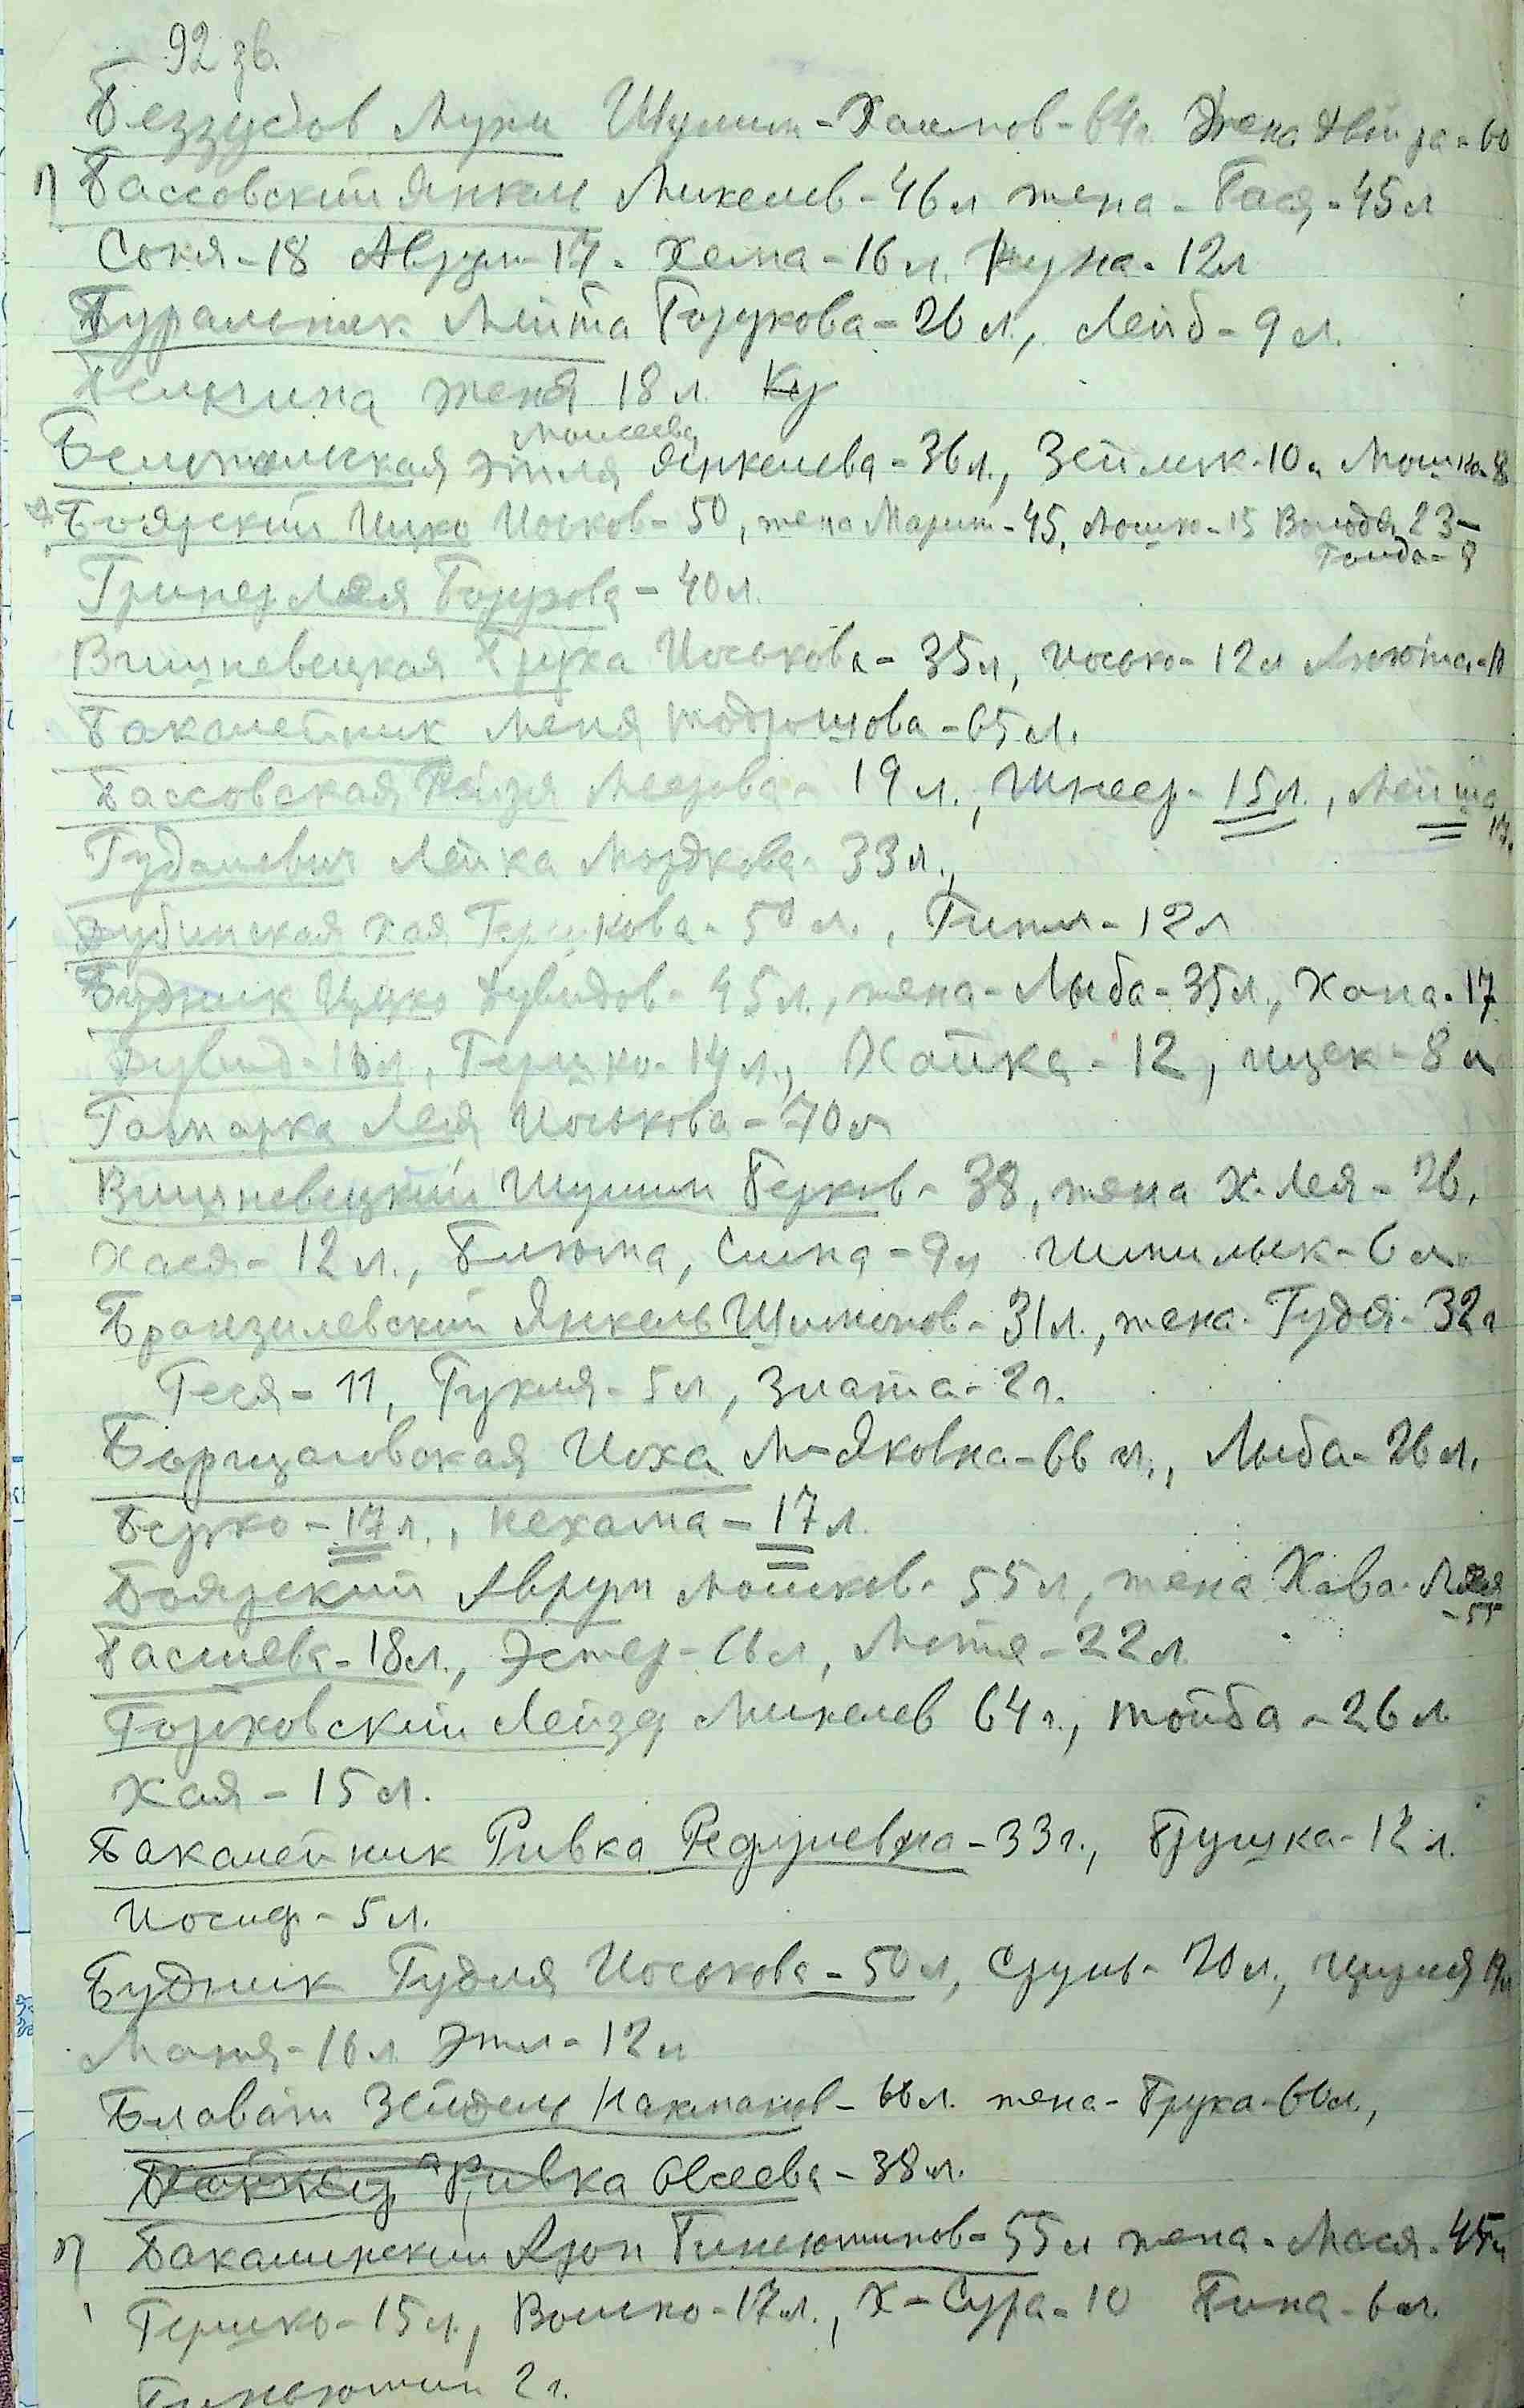 92 зв.
Беззубов Муни Шулим-Хаимов-64г. Жена Двойра-60
Бассовский Янкель Михелев-46л жена-Бася-45л
Соня-18 Аврум-17. Хема-16л. Нухa-12л
Буральник Мейта Борукова-26 л., Лейб-9 л.
Женя 18 л. Ку
Моисеева
Этля Янкелева-36л., Зейлик-10л Мошко-8
Боярский Ицко Иосков-50, жена Марьим-45, Мошко-15 Володя 23-
Голда-9
Гринер Лея Борухова-40л.
Вишневецкая Бруха Иоськова-35л, Иосько-12л
Бакалейник Меня Тодрошова-65л.
Бассовская Рейзя Меерова-19 л., Шнеер-15л.,
17.
Гудалевич Лейка Мордкова-33л.,
Дубинская Хая Гершкова-50 л., Гитл-12л
Будник Ицко Дувидов-45л., жена-Лыба-35л., Хона-17
Дувид-16л., Гершко-14л., Хайка-12, Ицек-8л
Гольмарка Лея Иоськова-70л
Вишневецкий Шулим Берков-38, жена Х.Лея-26,
Хася-12 л., Блюма, Сима-9л Шмилык-6л.
Бранзилевский Янкель Шимонов-31л., жена-Гудя-32г
Геся-11, Рухля-5л, Злата-2г.
Борщаговская Иоха М-Яковна-66 л., Лыба-26л.
Берко-17л., Нехама-17л.
Боярский Аврум Мошков-55л, жена Хава-Лея
-55
Басшева-18л., Эстер-16л, Мотя-22л
Борковский Лейзер Михелев 64г., Тойба-26л
Хая-15л.
Бакалейник Ривка Рефулевна-33г., Брушка-12 л.
Иосиф-5л.
Будник Гудля Иоськова-50л, Срунь-20л., Ципля
Мотя-16л Этл-12л
Блават Зейдель Нахманов-66л. жена-Бруха-60л.,
Ривка Овсеева-38л.
Бакалинский Арон Биньюминов-55л жена-Мася-45л
Гершко-15л., Волько-17л., Х-Сура-10 Бина-6л.
Биньюмин 2г.